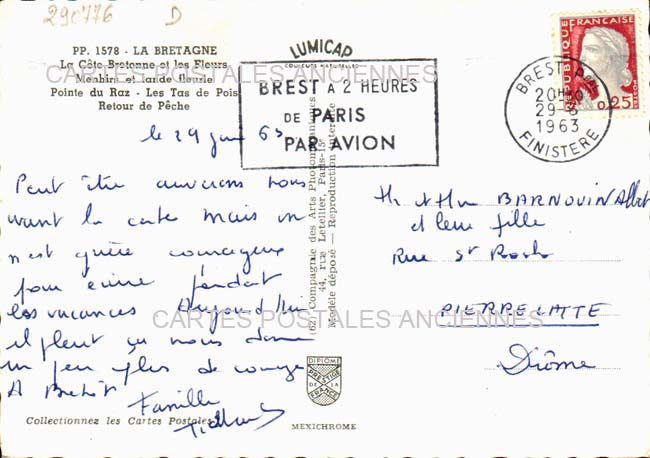 290776 D
PP. 1578 - LA BRETAGNE
La Côte Bretonne et les Fleurs
Menhirs et lande fleurie
Pointe du Raz - Les Tas de Pois
Retour de Pêche
LUMICAP
COULEURS NATURELLES
BREST A 2 HEURES
DE PARIS
PAR AVION
REPUBLIQUE FRANÇAISE
0,25
BREST Ppal
20H
29-6
1963
FINISTERE
CARTES POSTALES ANCIENNES
le 29 juin 63
Peut être aurions nous
avant la carte mais on
n'est guère courageux
pour écrire pendant
les vacances Aujourd'hui
il pleut ça nous donne
un peu plus de courage
A Bientôt
Famille
Mr et Mme BARNOUIN Albert
et leur fille
Rue St
PIERRELATTE
Drôme
CARTES POSTALES ANCIENNES
(62) Compagnie des Arts Photomécaniques
44, rue Letellier, Paris-15e
Modèle déposé - Reproduction interdite
DIPLOME
PRESTIGE
DE LA
FRANCE
Collectionnez les Cartes Postales
MEXICHROME